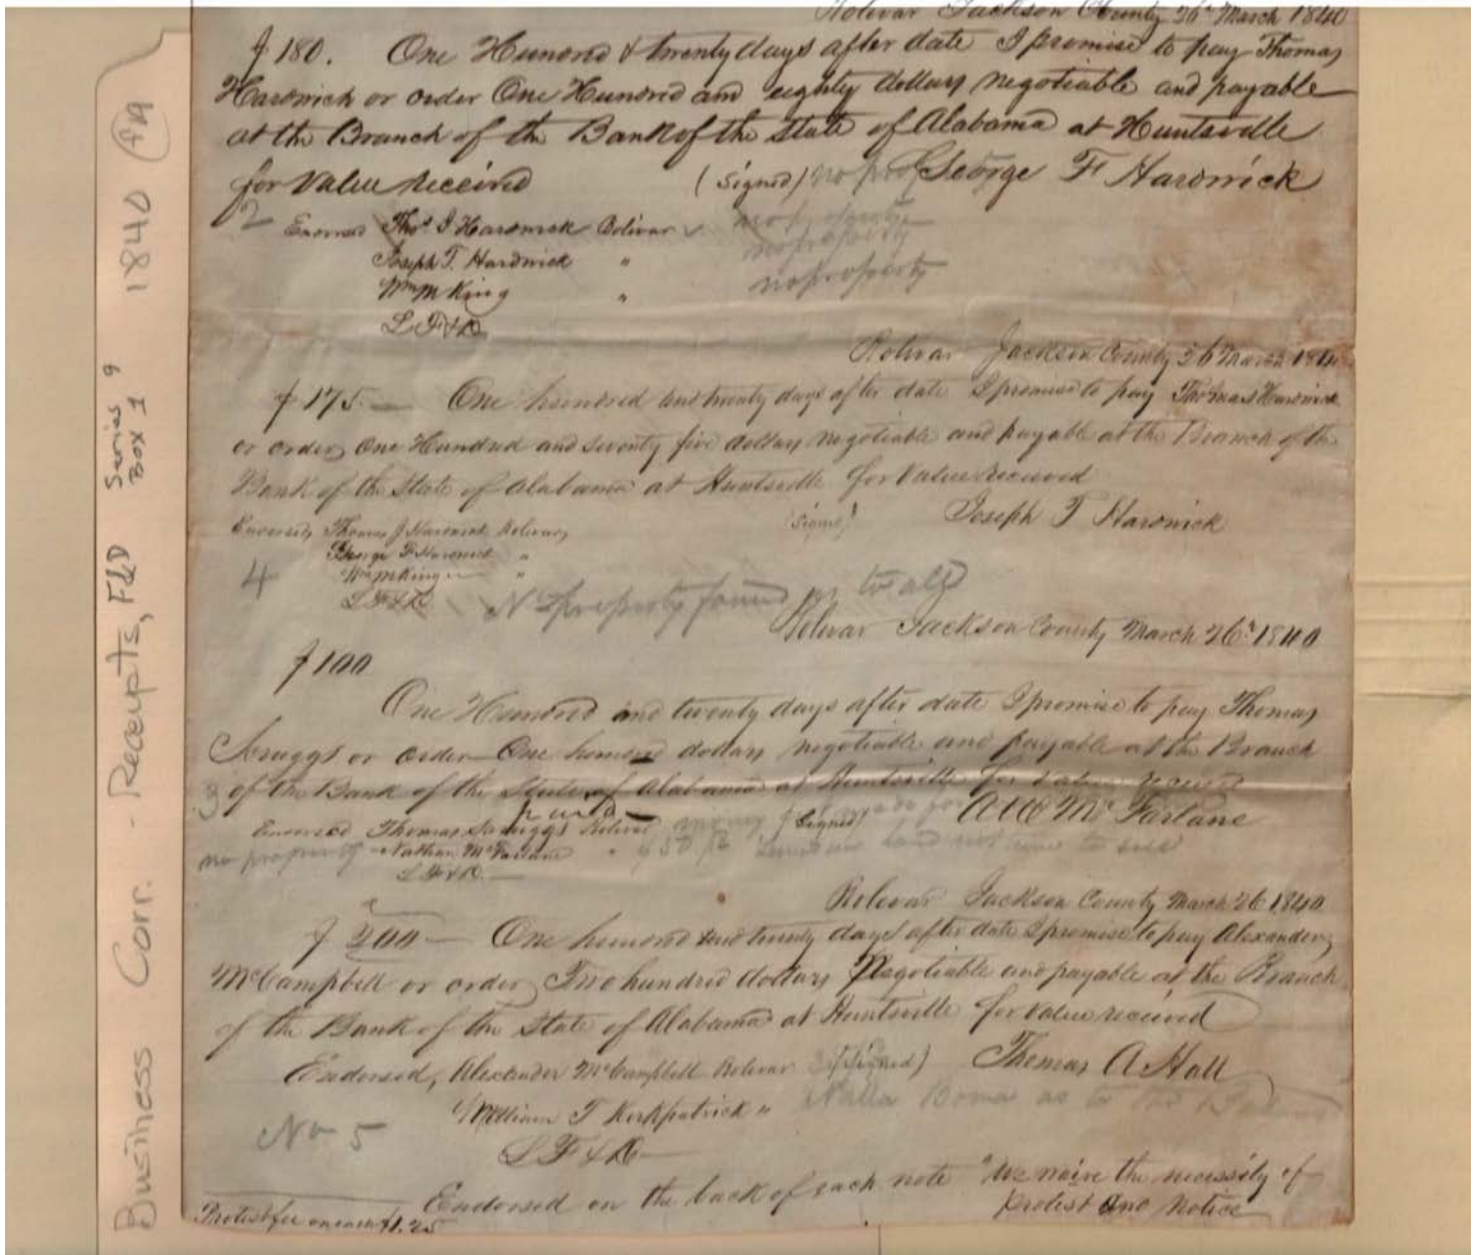 Bolivar Jackson County 26th March 1840
$180. One Hundred & twenty days after date I promise to pay Thomas
Hardwick or order One Hundred and eighty dollars negotiable and payable
at the Branch of the Bank of the State of Alabama at Huntsville
for Value received (Signed) no prop George F Hardwick
2 Endorsed Thos. J Hardwick Bolivar no property
no property
Joseph T. Hardwick "
Wm M King " no property
L F & D.
Bolivar Jackson County 26 March 1840
$175.— One hundred and twenty days after date I promise to pay Thomas Hardwick
or order One Hundred and seventy five dollars negotiable and payable at the Branch of the
Bank of the State of Alabama at Huntsville for Value received
(Signed) Joseph T Hardwick
Endorsed, Thomas J Hardwick Bolivar
George F Hardwick "
4 Wm M King "
L F & D. No property found to
Bolivar Jackson County March 26th 1840
$100
One Hundred and twenty days after date I promise to pay Thomas
Scruggs or order One hundred dollars negotiable and payable at the Branch
3 of the Bank of the State of Alabama at Huntsville for Value received
Endorsed Thomas Scruggs Bolivar money (Signed) A W McFarlane
no property Nathan McFarlane " $50 land to sell
L F & D.—
Bolivar Jackson County March 26 1840
$200— One hundred and twenty days after date I promise to pay Alexander
McCampbell or order Two hundred dollars Negotiable and payable at the Branch
of the Bank of the State of Alabama at Huntsville for Value received
Endorsed, Alexander McCampbell Bolivar (Signed) Thomas A Hall
William T Kirkpatrick " Nulla Bona as to the
No 5
L F & D—
Endorsed on the back of each note "We waive the necessity of
Protest fee on each $1.25 protest and notice
Business Corr. - Receipts, F&D Series 9 Box 1 1840 (fA)